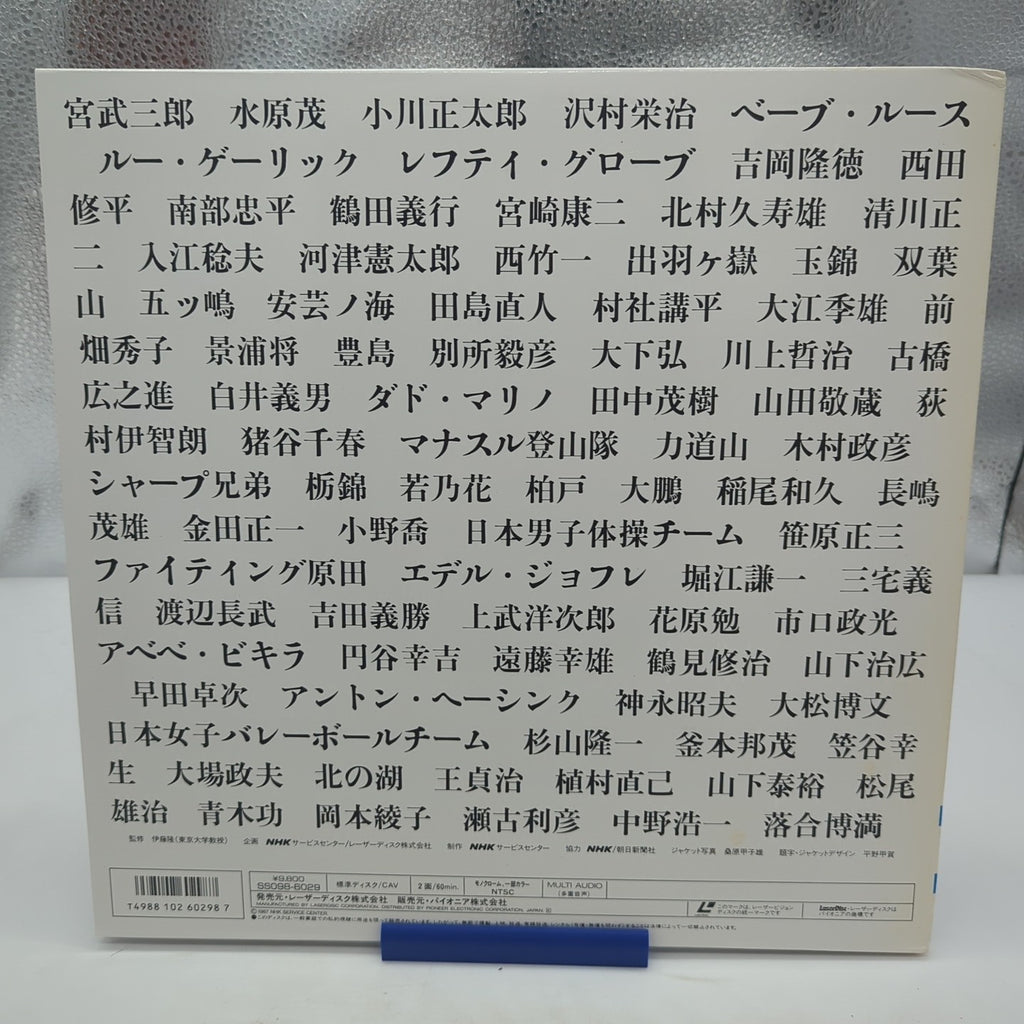 宮武三郎 水原茂 小川正太郎 沢村栄治 ベーブ・ルース
ルー・ゲーリック レフティ・グローブ 吉岡隆徳 西田
修平 南部忠平 鶴田義行 宮崎康二 北村久寿雄 清川正
二 入江稔夫 河津憲太郎 西竹一 出羽ヶ嶽 玉錦 双葉
山 五ッ嶋 安芸ノ海 田島直人 村社講平 大江季雄 前
畑秀子 景浦将 豊島 別所毅彦 大下弘 川上哲治 古橋
広之進 白井義男 ダド・マリノ 田中茂樹 山田敬蔵 荻
村伊智朗 猪谷千春 マナスル登山隊 力道山 木村政彦
シャープ兄弟 栃錦 若乃花 柏戸 大鵬 稲尾和久 長嶋
茂雄 金田正一 小野喬 日本男子体操チーム 笹原正三
ファイティング原田 エデル・ジョフレ 堀江謙一 三宅義
信 渡辺長武 吉田義勝 上武洋次郎 花原勉 市口政光
アベベ・ビキラ 円谷幸吉 遠藤幸雄 鶴見修治 山下治広
早田卓次 アントン・ヘーシンク 神永昭夫 大松博文
日本女子バレーボールチーム 杉山隆一 釜本邦茂 笠谷幸
生 大場政夫 北の湖 王貞治 植村直己 山下泰裕 松尾
雄治 青木功 岡本綾子 瀬古利彦 中野浩一 落合博満
監修 伊藤隆(東京大学教授) 企画 NHKサービスセンター/レーザーディスク株式会社 制作 NHKサービスセンター 協力 NHK/朝日新聞社 ジャケット写真 桑原甲子雄 題字・ジャケットデザイン 平野甲賀
T4988102602987
¥9,800
SS098-6029 標準ディスク/CAV 2面/60min. モノクローム、一部カラー NTSC MULTI AUDIO (多重音声)
発売元・レーザーディスク株式会社 販売元・パイオニア株式会社
MANUFACTURED BY LASERDISC CORPORATION. DISTRIBUTED BY PIONEER ELECTRONIC CORPORATION, JAPAN.
© 1987 NHK SERVICE CENTER
このマークは、レーザービジョンディスクの統一マークです
LaserDisc・レーザーディスクはパイオニアの商標です